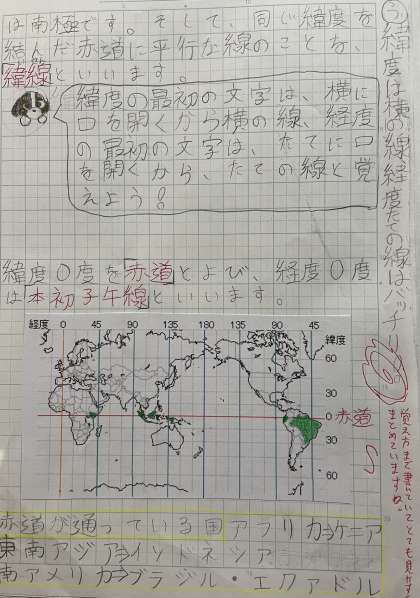 は南極です。そして、同じ緯度を
結んだ赤道に平行な線のことを、
緯線といいます。
緯度の最初の文字は、横に
口を開くから横の線、経度
の最初の文字は、たてに口
を開くから、たての線と覚
えよう!
緯度0度を赤道とよび、経度0度
は本初子午線といいます。
経度 0 45 90 135 180 135 90 45 緯度
60
30
0 赤道
30
60
赤道が通っている国アフリカ→ケニア
東南アジア→インドネシア
南アメリカ→ブラジル・エクアドル
緯度は横の線経度たての線はバッチリ
覚え方まで書いていてとても見やすく
まとめていますね。